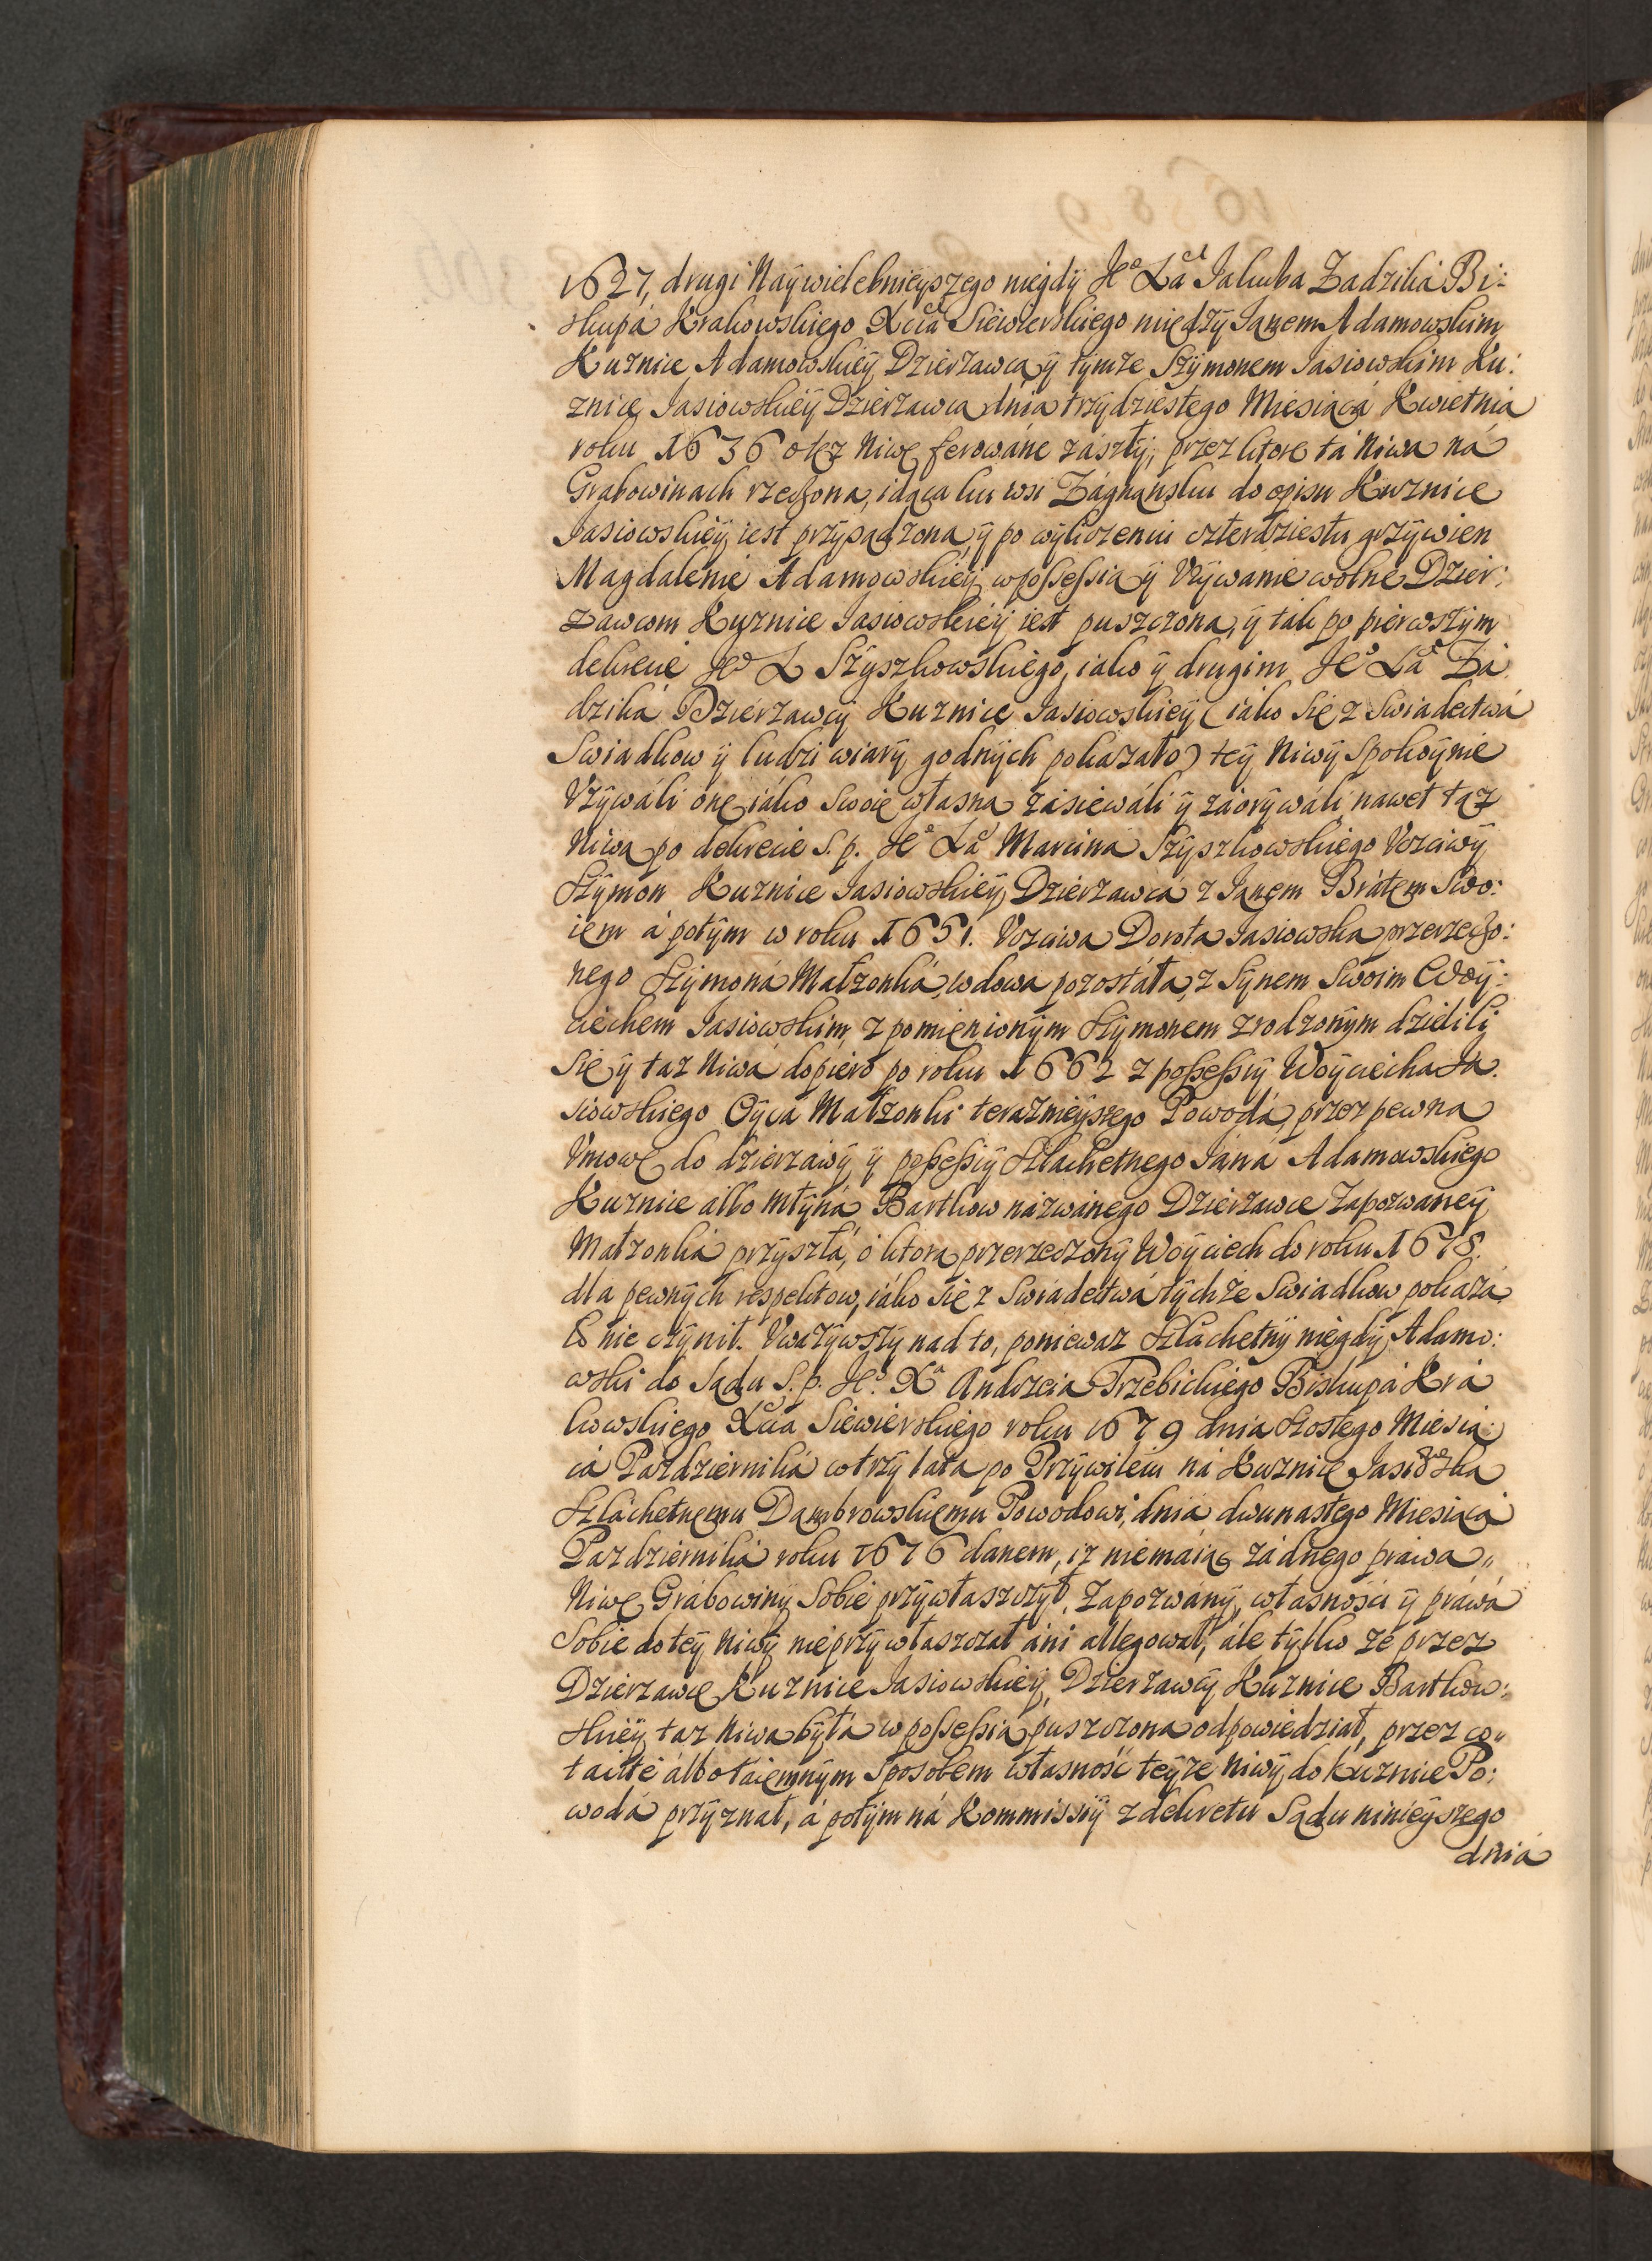 1627, drugi Naÿwielebnieÿszego niegdÿ Jeo Xa Jakuba Zadzika Bi:
skupá Krakowskiego Xcia Siewierskiego międzÿ Janem Adamowskim
Kuznice Adamowskieÿ Dzierzawcą ÿ tÿmze Szÿmonem Jasiowskim Ku:
znice Jasiowskieÿ Dzierzawcą dnia trzÿdziestego Miesiącá Kwietnia
roku 1636 otęz Niwę ferowáne zászłÿ, przez ktore tá Niwa ná
Grabowinach rzeczona, idąca ku wsi Zágnąnsku do opisu Kuznice
Jasiowskieÿ iest przÿsądzona, ÿ po wÿliczeniu czterdziestu grzÿwien
Magdalenie Adamowskieÿ w possessią ÿ Vzÿwanie wolne Dzier:
zawcom Kuznice Jasiowskieÿ iest puszczona, ÿ tak po pierwszÿm
dekrecie Jeo X Szÿszkowskiego, iako ÿ drugim Jeo Xa Za
dziká Dzierzawcÿ Kuznice Jasiowskieÿ (iáko się z Swiadectwá
Swiadkow ÿ ludzi wiarÿ godnÿch pokazało) teÿ Niwÿ Spokoÿnie
Vzÿwáli onę iáko Swoię własną zásiewáli ÿ záorÿwáli, nawet tąz
Niwą po dekrecie S. p. Jeo Xa Marcina Szÿszkowskiego Vczciwÿ
Szÿmon Kuznice Jasiowskieÿ Dzierzawcá z Janem Brátem Swo:
iem á potÿm w roku 1651. Vczciwa Dorota Jasiowska przerzeczo:
nego Szÿmoná Małzonká, wdowa pozostáła, z Sÿnem Swoim Woÿ:
ciechem Jasiowskim, z pomienionÿm Szÿmonem zrodzonÿm dzielili
Się ÿ taz Niwá dopiero po roku 1662 z possessiÿ Woÿciecha Ja
siowskiego Oÿca Małzonki terazniéÿszego Powodá, przez pewną
Vmowę do dzierzawÿ ÿ possessiÿ Szlachetnego Janá Adamowskiego
Kuznice albo młÿná Bartkow názwánego Dzierzawce Zapozwaneÿ
Małzonká przÿszłá, o ktorą przerzeczonÿ Woÿciech do roku 1678.
dla pewnÿch respektow, iáko się z Swiádectwá tÿchze Swiadkow pokazá
ło nie czÿnił. Vwazÿwszÿ nad to, poniewaz Szlachetnÿ niegdÿ Adamo:
wski do Sądu S. p. Jeo Xa Andrzeia Trzebickiego Biskupá Krá
kowskiego Xcia Siewierskiego roku 1679 dnia Szostego Miesią
cá Pazdzierniká w trzÿ lata po Przÿwileiu ná Kuznicę Jasiowska
Szlachetnemu Dąmbrowskiemu Powodowi, dniá dwunastego Miesiącá
Pazdzierniká roku 1676 danem, iz niemáiąc zádnego práwa"
Niwę Grábowinÿ Sobie przÿwłaszczÿł, Zapozwánÿ, własnosci ÿ práwá
Sobie do teÿ Niwÿ nieprzÿwłaszczał áni allegował, ále tÿlko ze przez
Dzierzawcę Kuznice Jasiowskieÿ, Dzierzawcÿ Kuznice Bartkow:
skieÿ taz Niwa bÿłá w possessią puszczona odpowiedział, przez co"
taicie álbo táiemnÿm Sposobem własność teÿze Niwÿ do kuznice Po:
wodá przÿznał, á potÿm ná Kommissiÿ z dekretu Sądu ninieÿszego
dniá